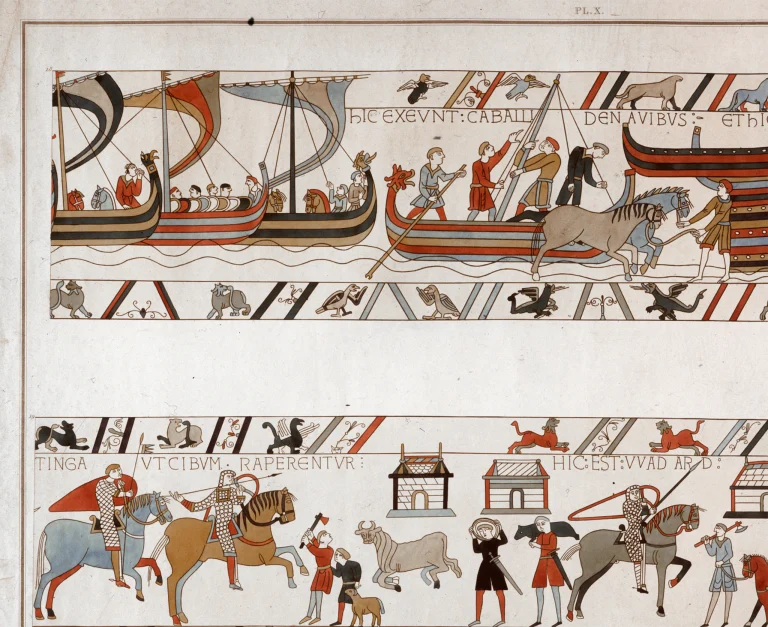 PL.X.
hIC EXEVNT: CABALLI DENAVIBVS:- ET hIC
TINGA VT CIBVM · RAPERENTVR: HIC: EST: VVAD AR D: